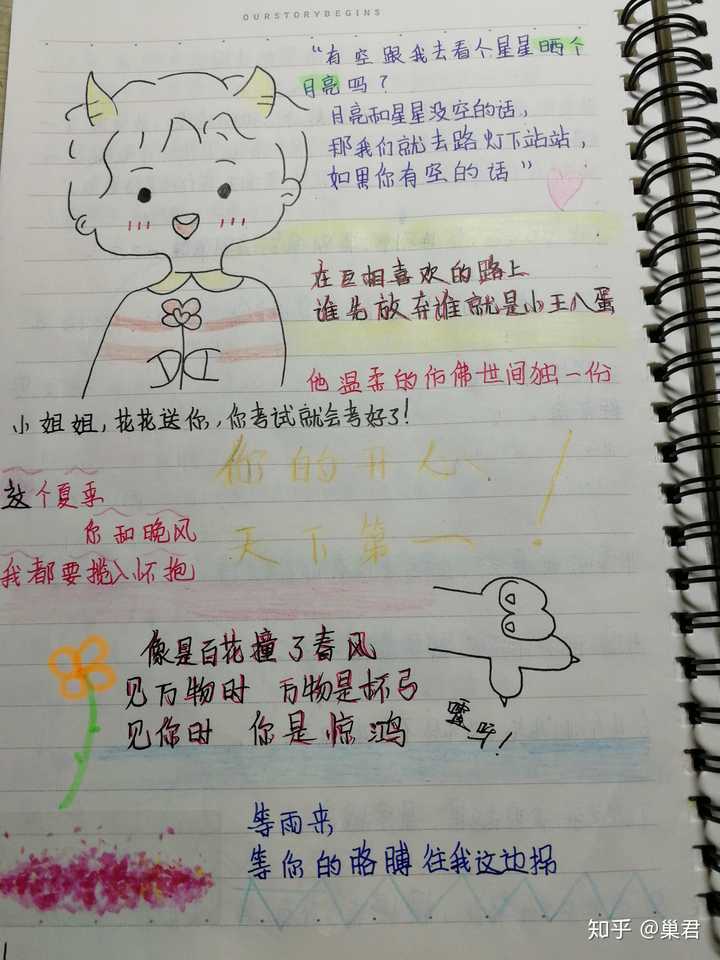 OURSTORYBEGINS
“有空跟我去看个星星晒个
月亮吗？
月亮和星星没空的话，
那我们就去路灯下站站，
如果你有空的话”
在互相喜欢的路上
谁先放弃谁就是小王八蛋
他温柔的仿佛世间独一份
小姐姐，花花送你，你考试就会考好了！
你的开心
天下第一！
这个夏季
你和晚风
我都要揽入怀抱
像是百花撞了春风
见万物时 万物是杯弓
见你时 你是惊鸿
等雨来
等你的胳膊往我这边拐
知乎 @巢君